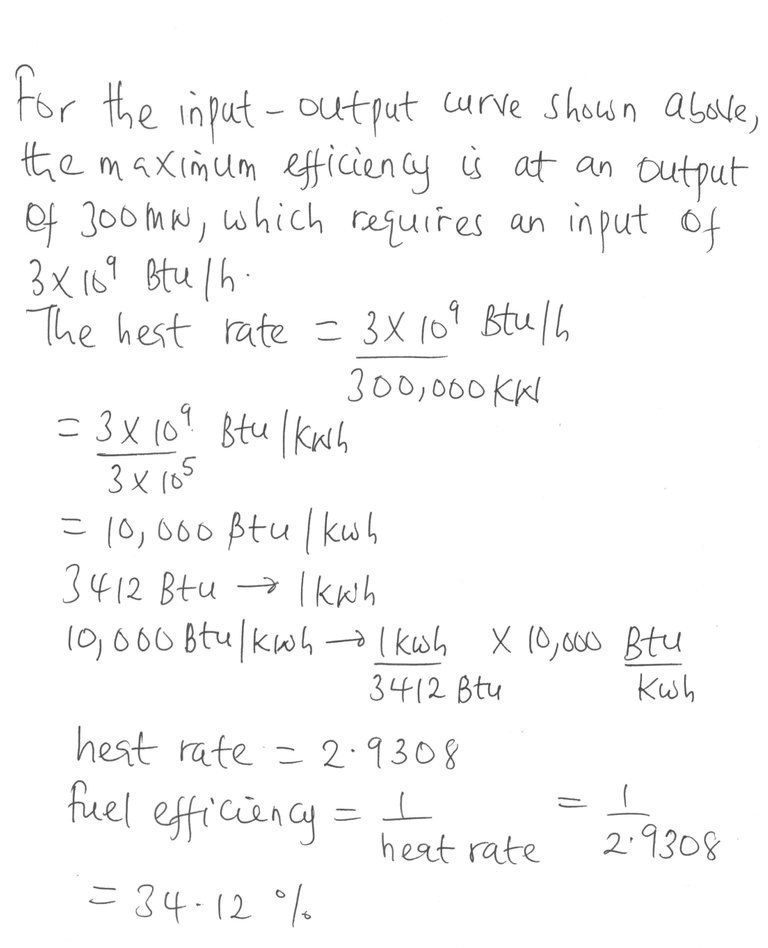 For the input - output curve shown above,
the maximum efficiency is at an output
of 300MW, which requires an input of
3 X 10⁹ Btu/h.
The heat rate = 3 X 10⁹ Btu/h
300,000 KW
= 3 X 10⁹ Btu/kwh
3 X 10⁵
= 10,000 Btu/kwh
3412 Btu → 1kwh
10,000 Btu/kwh → 1kwh X 10,000 Btu
3412 Btu Kwh
heat rate = 2.9308
fuel efficiency = 1 = 1
heat rate 2.9308
= 34.12 %